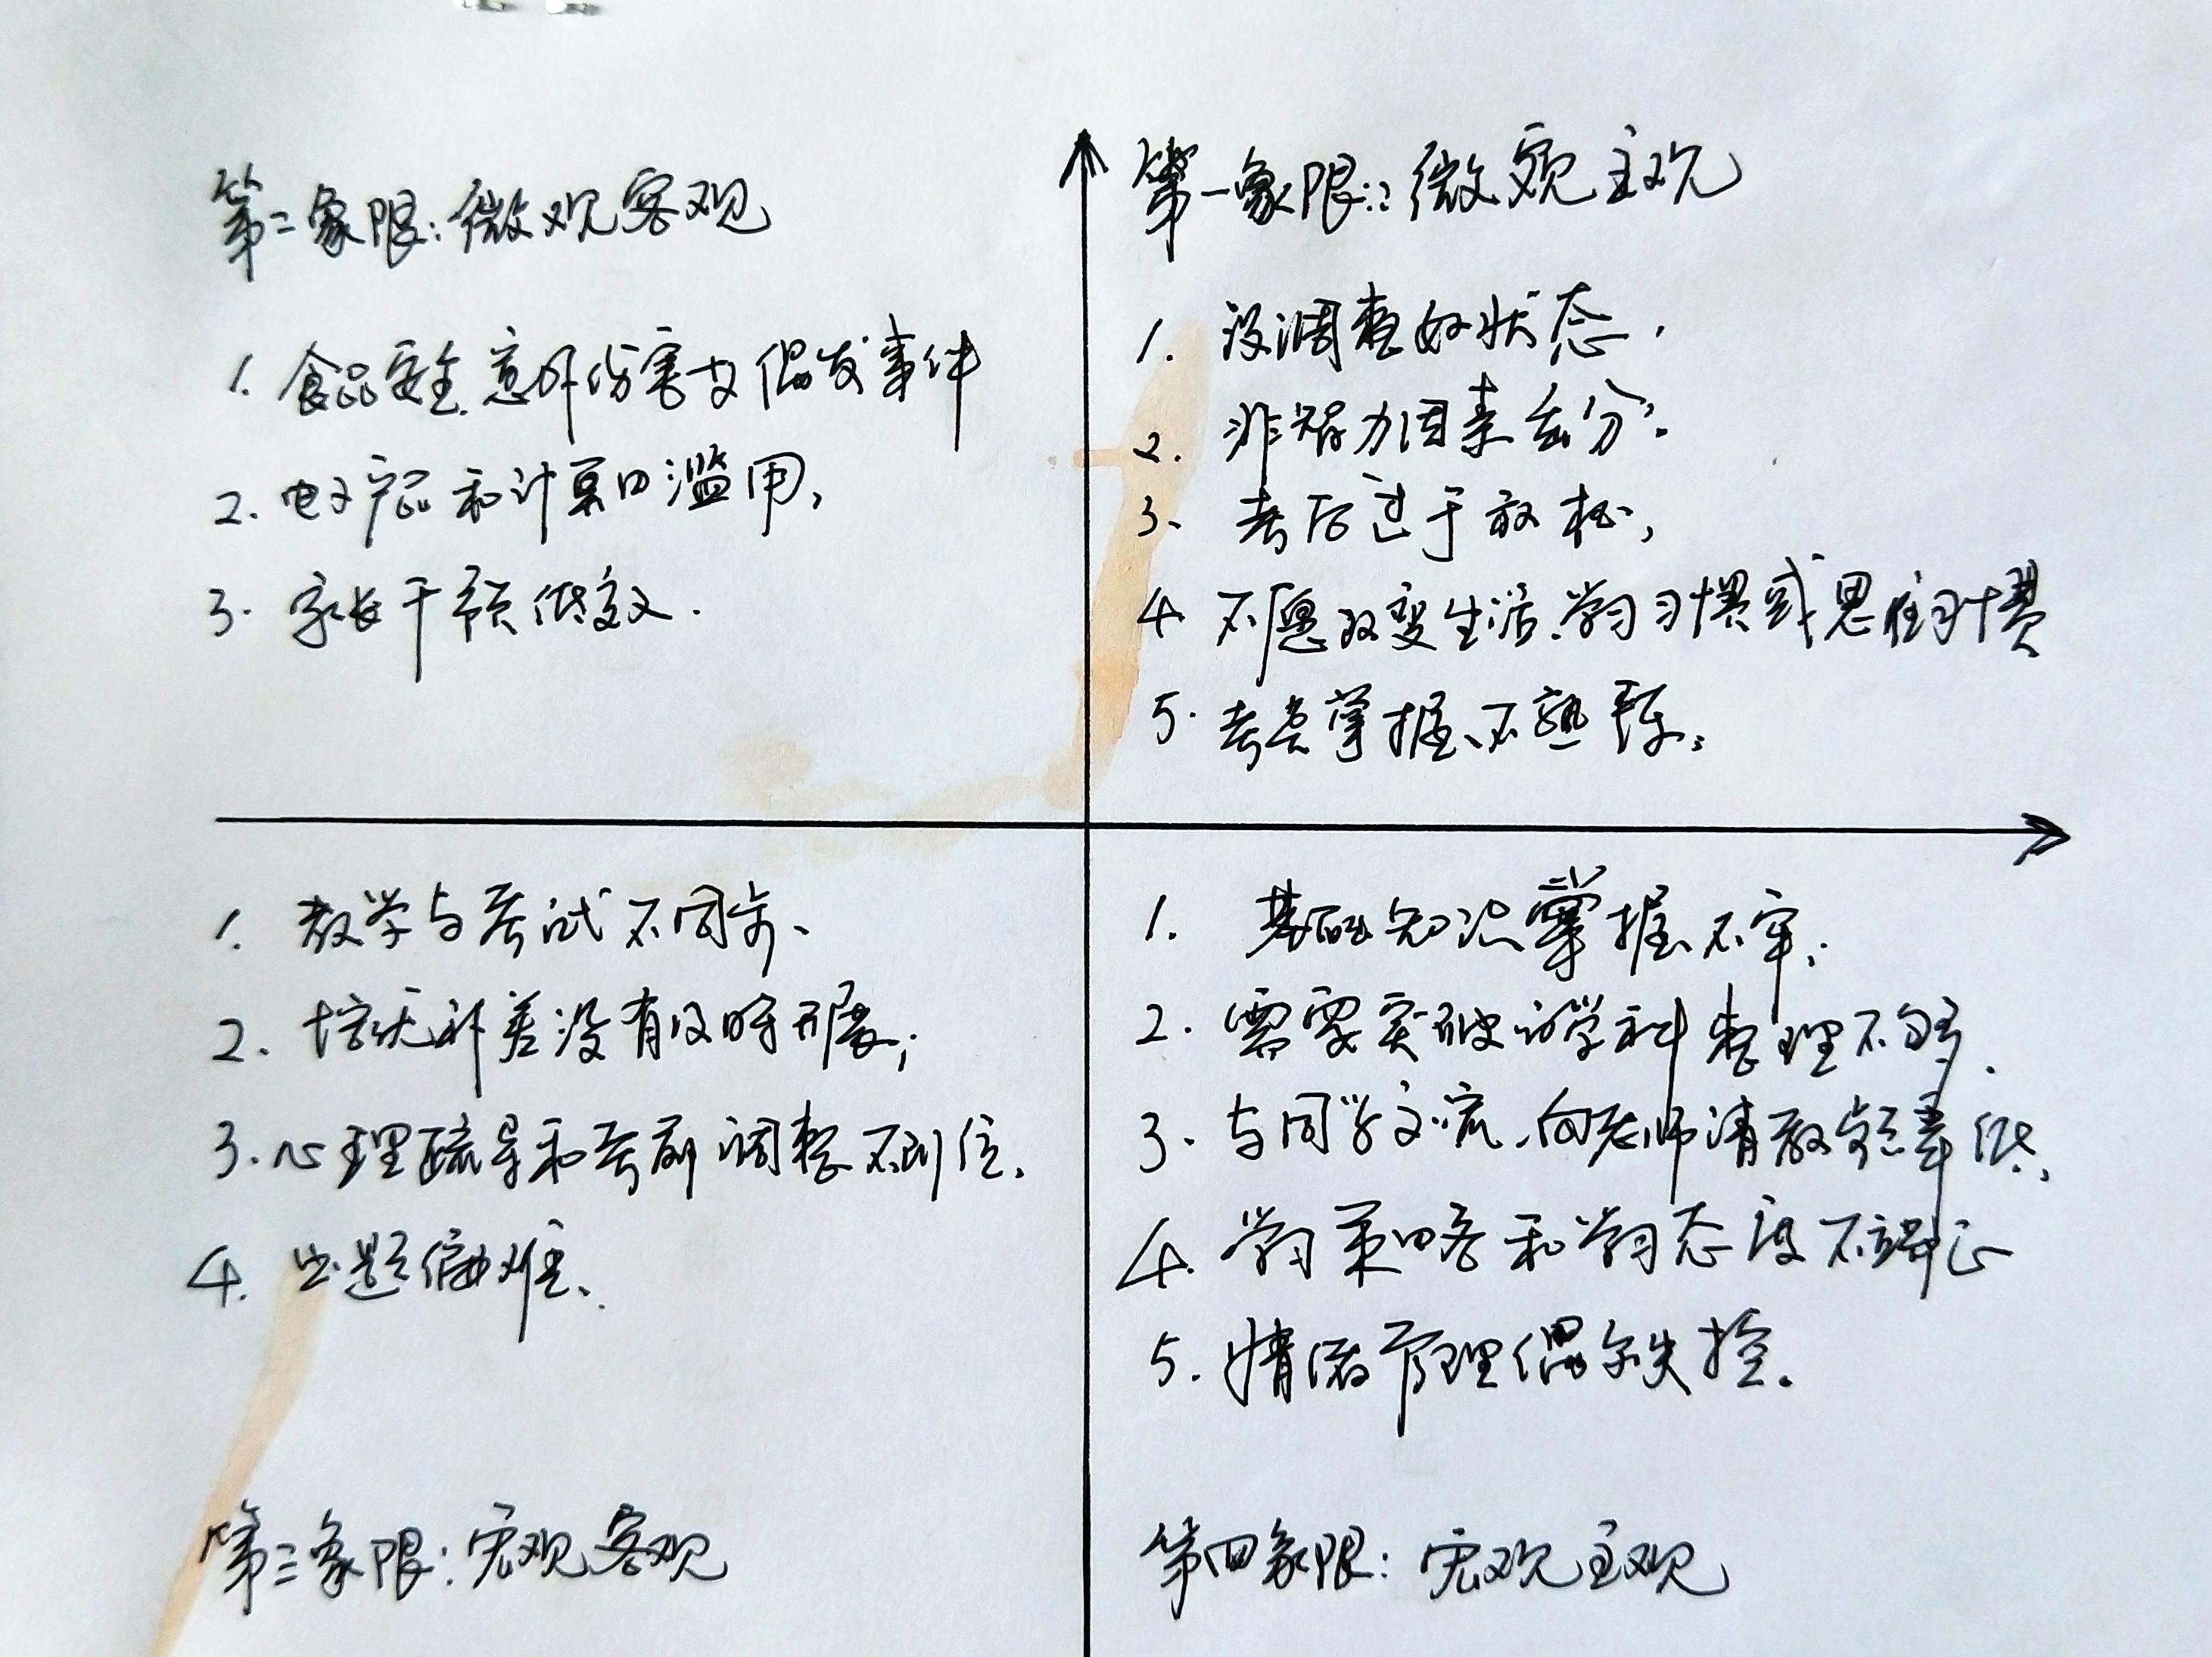 第二象限：微观客观
1. 食品安全、意外伤害或偶发事件
2. 电子产品和计算口滥用，
3. 家长干预低效.
第一象限：：微观主观
1. 没调整好状态，
2. 非智力因素丢分；
3、考后过于放松，
4. 不愿改变生活、学习习惯或思维习惯
5. 考点掌握不熟练；
1. 教学与考试不同步、
2. 培优补差没有及时开展；
3. 心理疏导和考前调整不到位、
4. 出题偏难、
第三象限：宏观客观
1. 基础知识掌握不牢；
2. 需要突破的学科整理不够、
3、与同学交流、向老师请教频率低、
4. 学习策略和学习态度不端正
5. 情绪管理偶尔失控。
第四象限：宏观主观